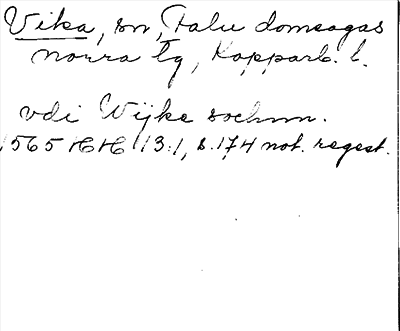 Vika, sn, Falu domsagas
norra tg, Kopparb. l.
vdi Wijke sochnn.
1565 HH 13:1, s. 174 not. regest.